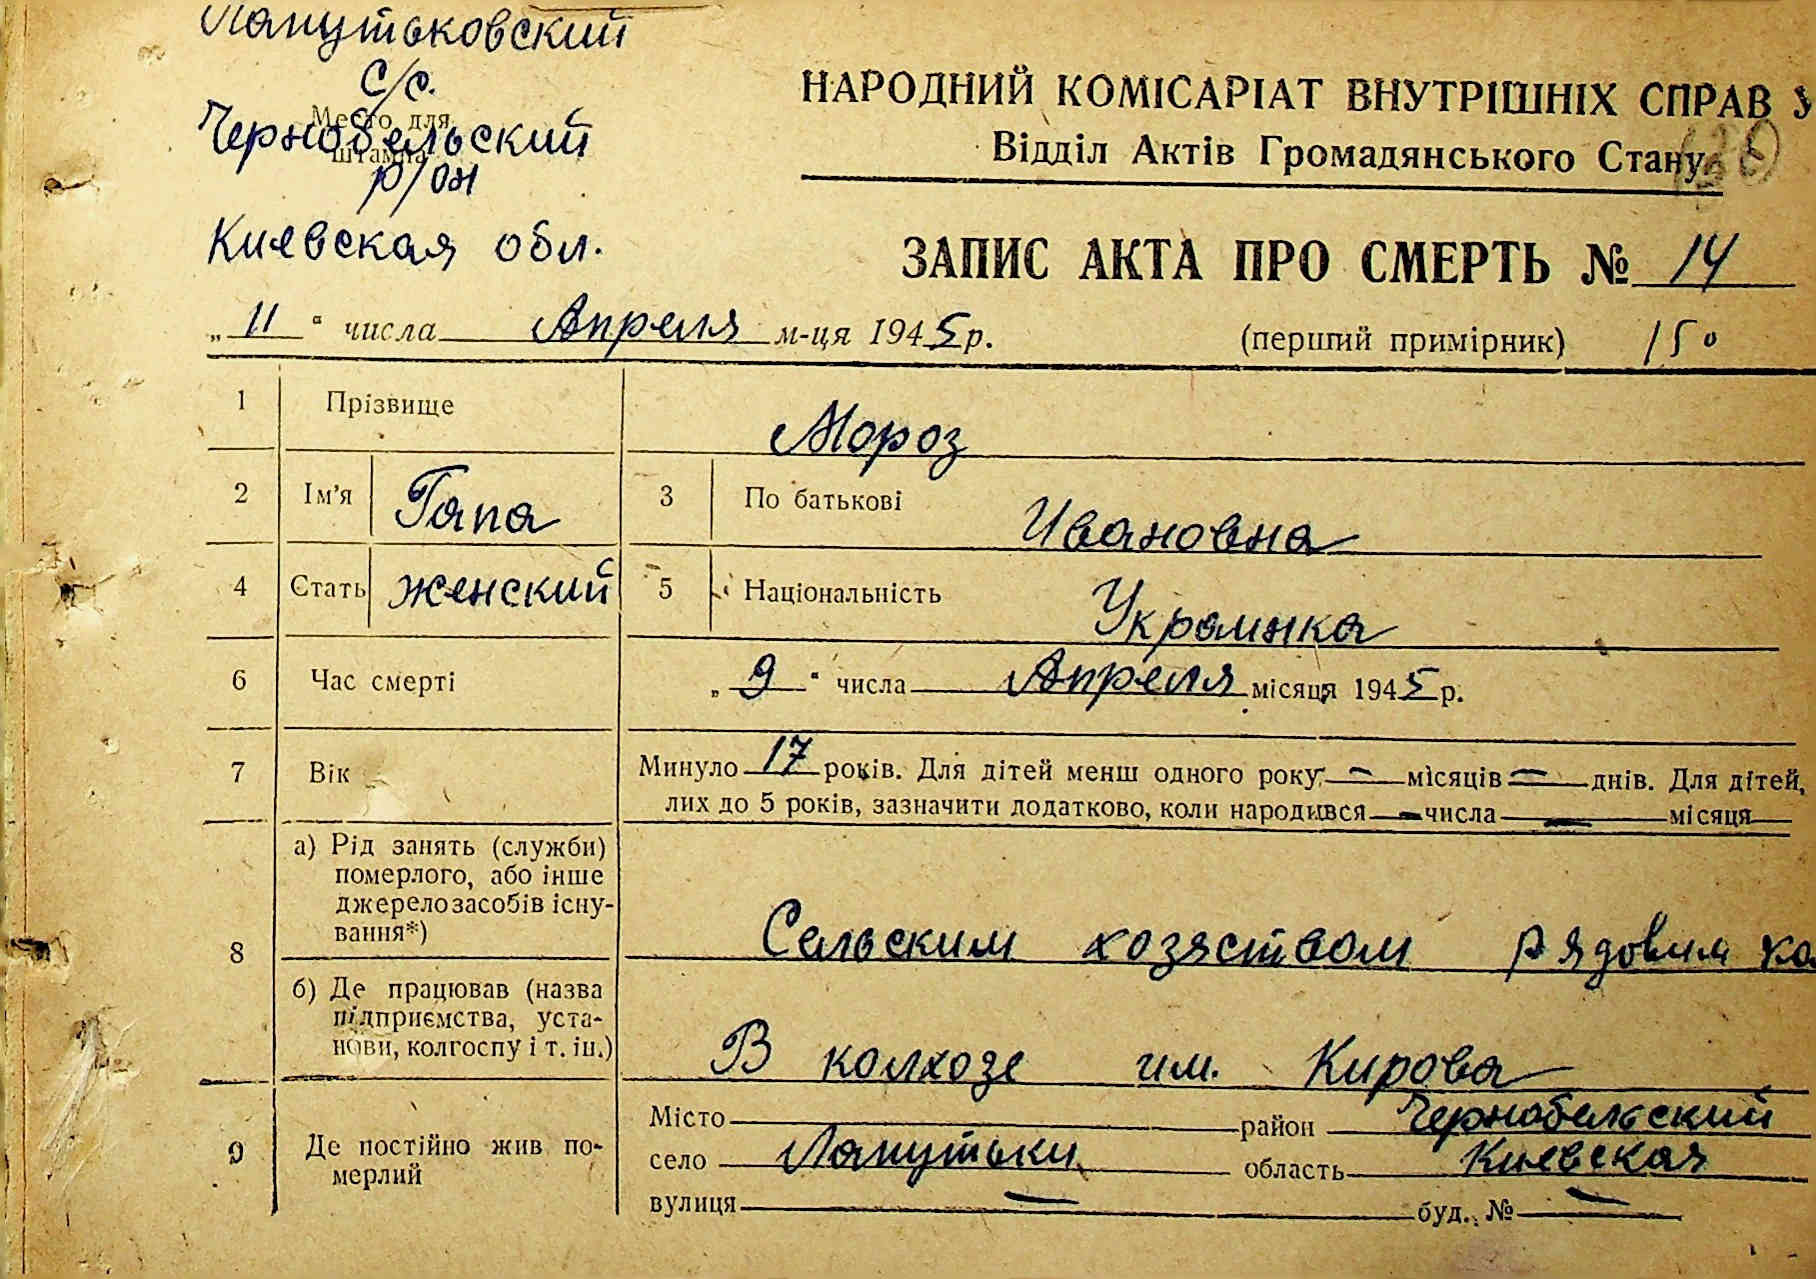 Лапутьковский
с/с.
Место для
штампа
Чернобельский
р/он
Киевская обл.
НАРОДНИЙ КОМІСАРІАТ ВНУТРІШНІХ СПРАВ У
Відділ Актів Громадянського Стану
ЗАПИС АКТА ПРО СМЕРТЬ № 14
„ 11 “ числа Апреля м-ця 1945 р.
(перший примірник) 150
1 Прізвище Мороз
2 Ім’я Гапа 3 По батькові Ивановна
4 Стать женский 5 Національність Украинка
6 Час смерті „ 9 “ числа Апреля місяця 1945 р.
7 Вік Минуло 17 років. Для дітей менш одного року — місяців — днів. Для дітей,
лих до 5 років, зазначити додатково, коли народився — числа — місяця
8 а) Рід занять (служби)
померлого, або інше
джерело засобів існу-
вання*)
Сельским хозяством рядовим ко
б) Де працював (назва
підприємства, уста-
нови, колгоспу і т. ін.)
В колхозе им. Кирова
9 Де постійно жив по-
мерлий
Місто район Чернобельский
село Лапутьки область Киевская
вулиця — буд. № —